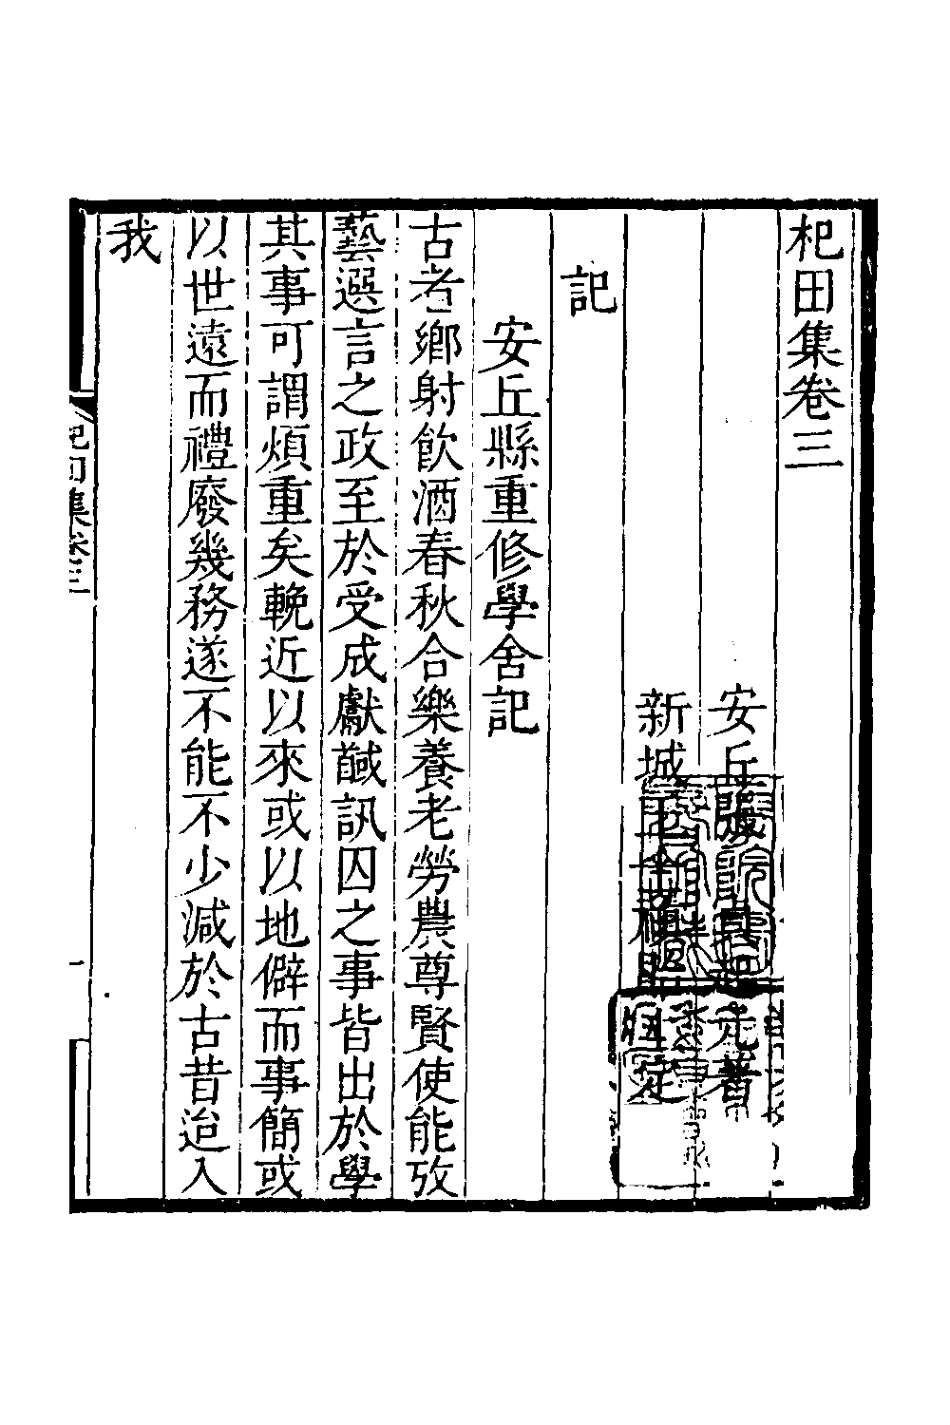 杞田集卷三
安丘張貞起元著
新城王士禛阮亭定
記
安丘縣重修學舍記
古者鄉射飲酒春秋合樂養老勞農尊賢使能攷
藝選言之政至於受成獻馘訊囚之事皆出於學
其事可謂煩重矣輓近以來或以地僻而事簡或
以世遠而禮廢幾務遂不能不少減於古昔迨入
我
杞田集卷三
一